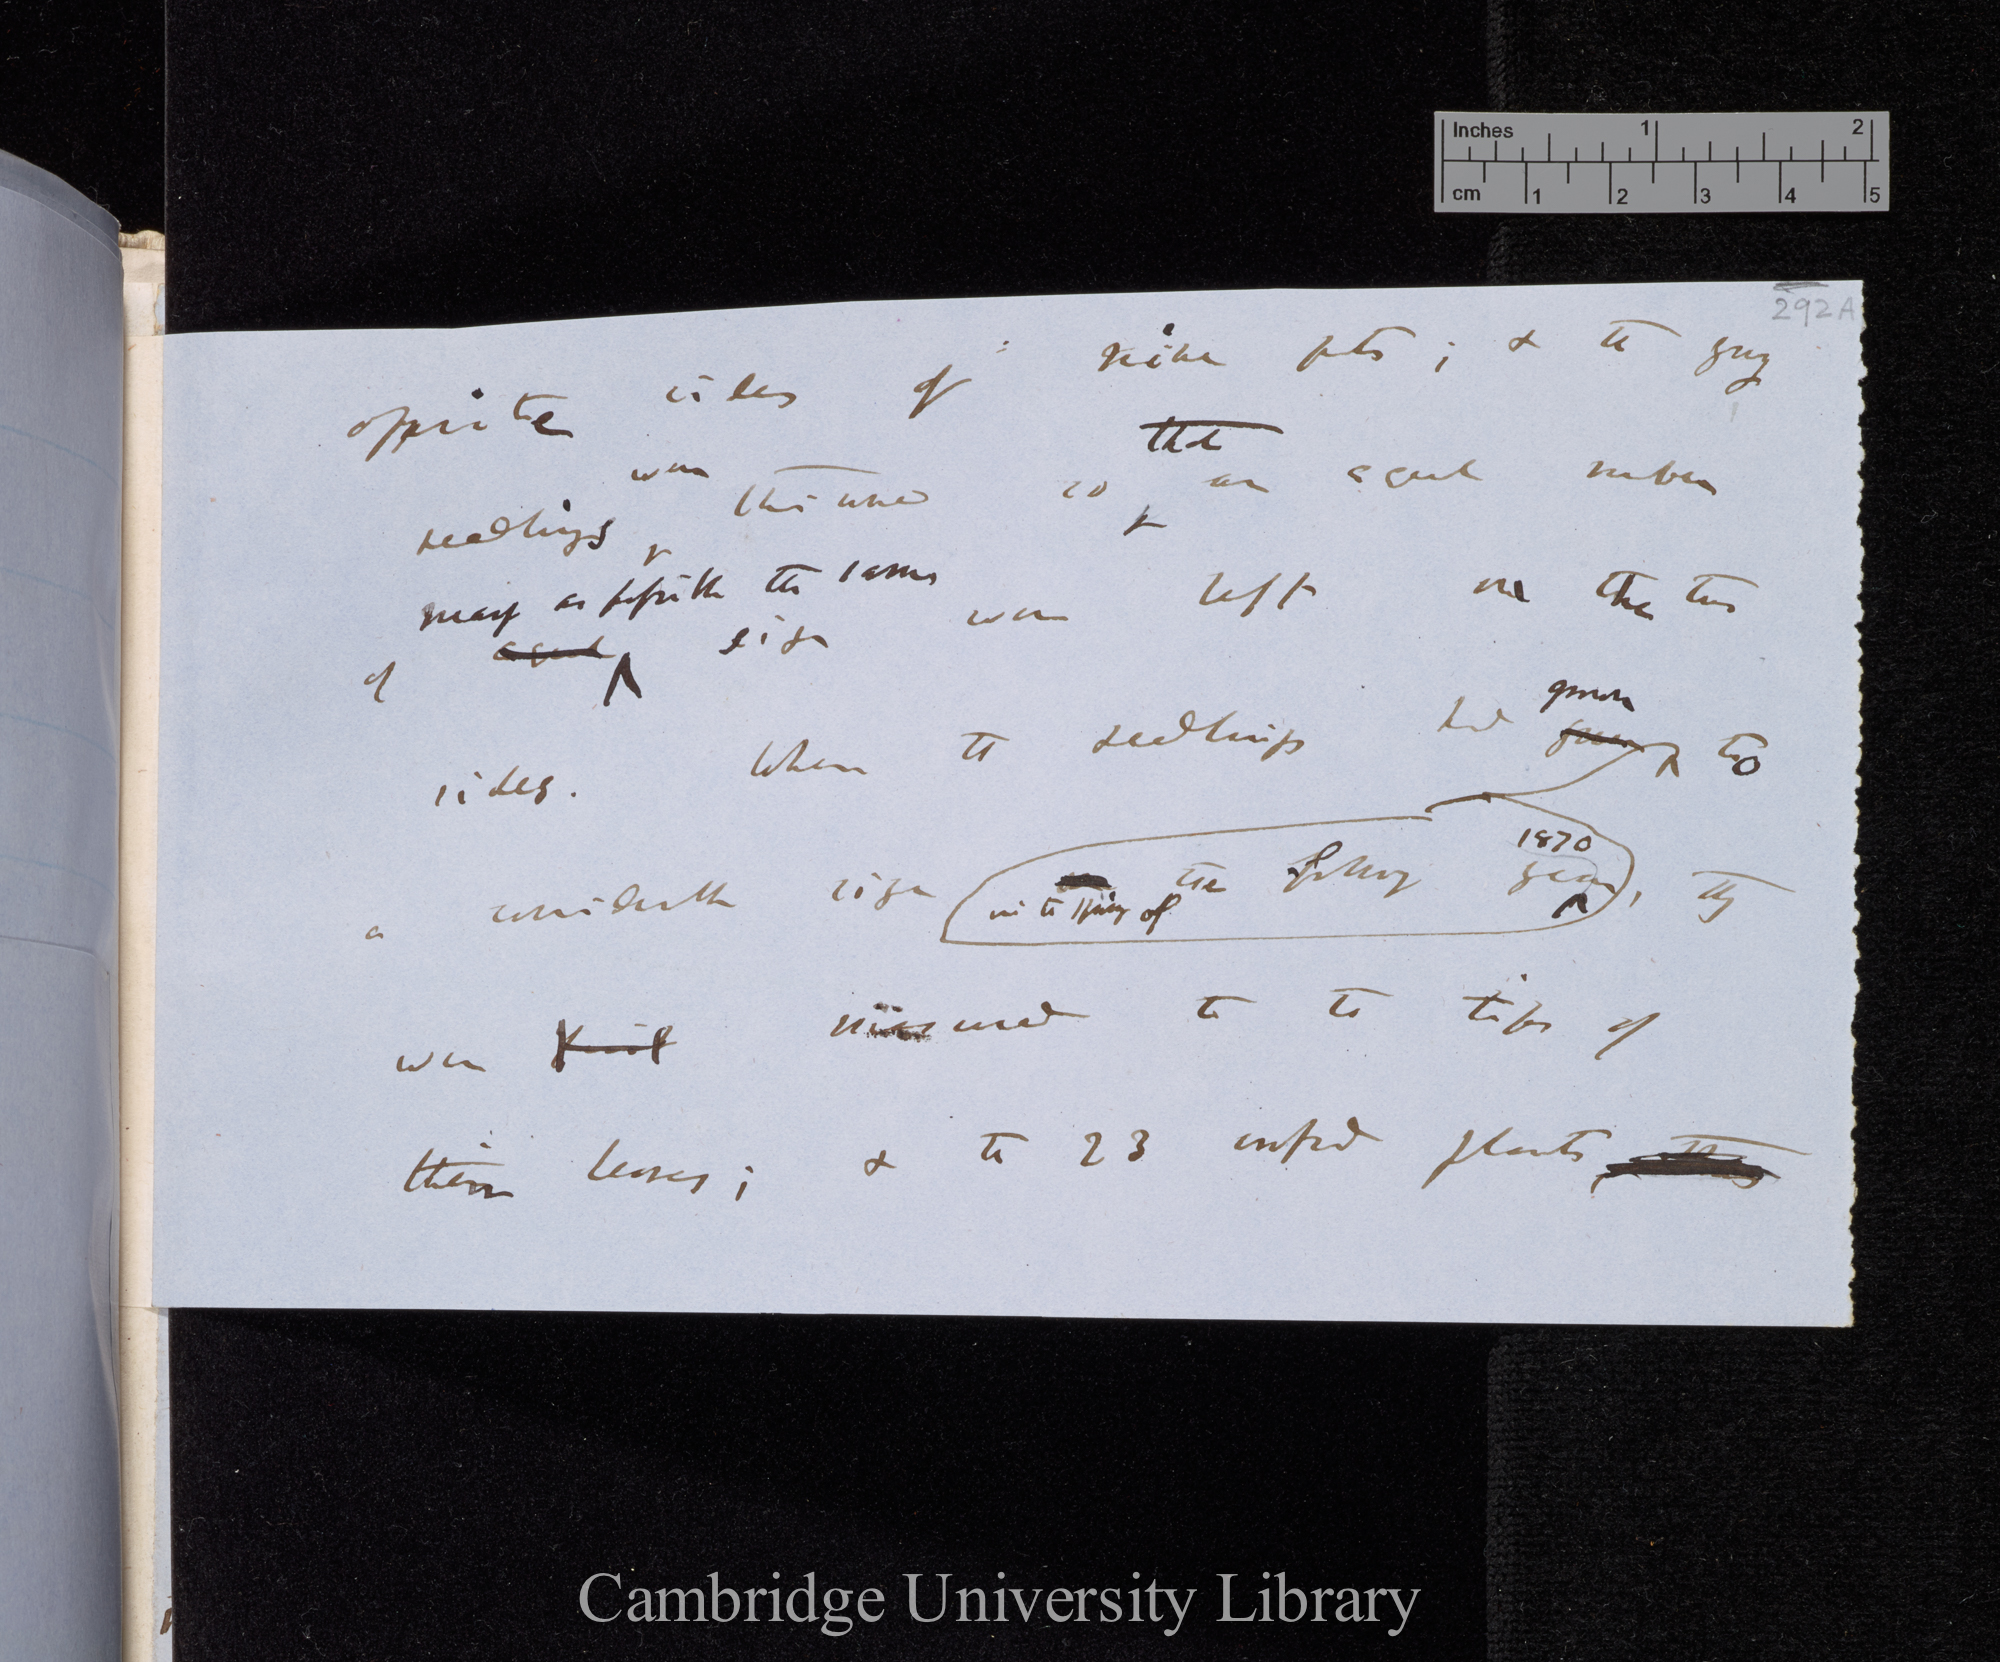 Inches 1 2
cm 1 2 3 4 5
292A
opposite sides of nine pots; & the young
seedlings were thinned so that an equal number
of equal as nearly as possible the same size were left on the two
sides. When the seedlings had grown to
a considerable size in the spring of the following year 1870, they
were measured to the tips of
their leaves; & the 23 crossed plants
Cambridge University Library